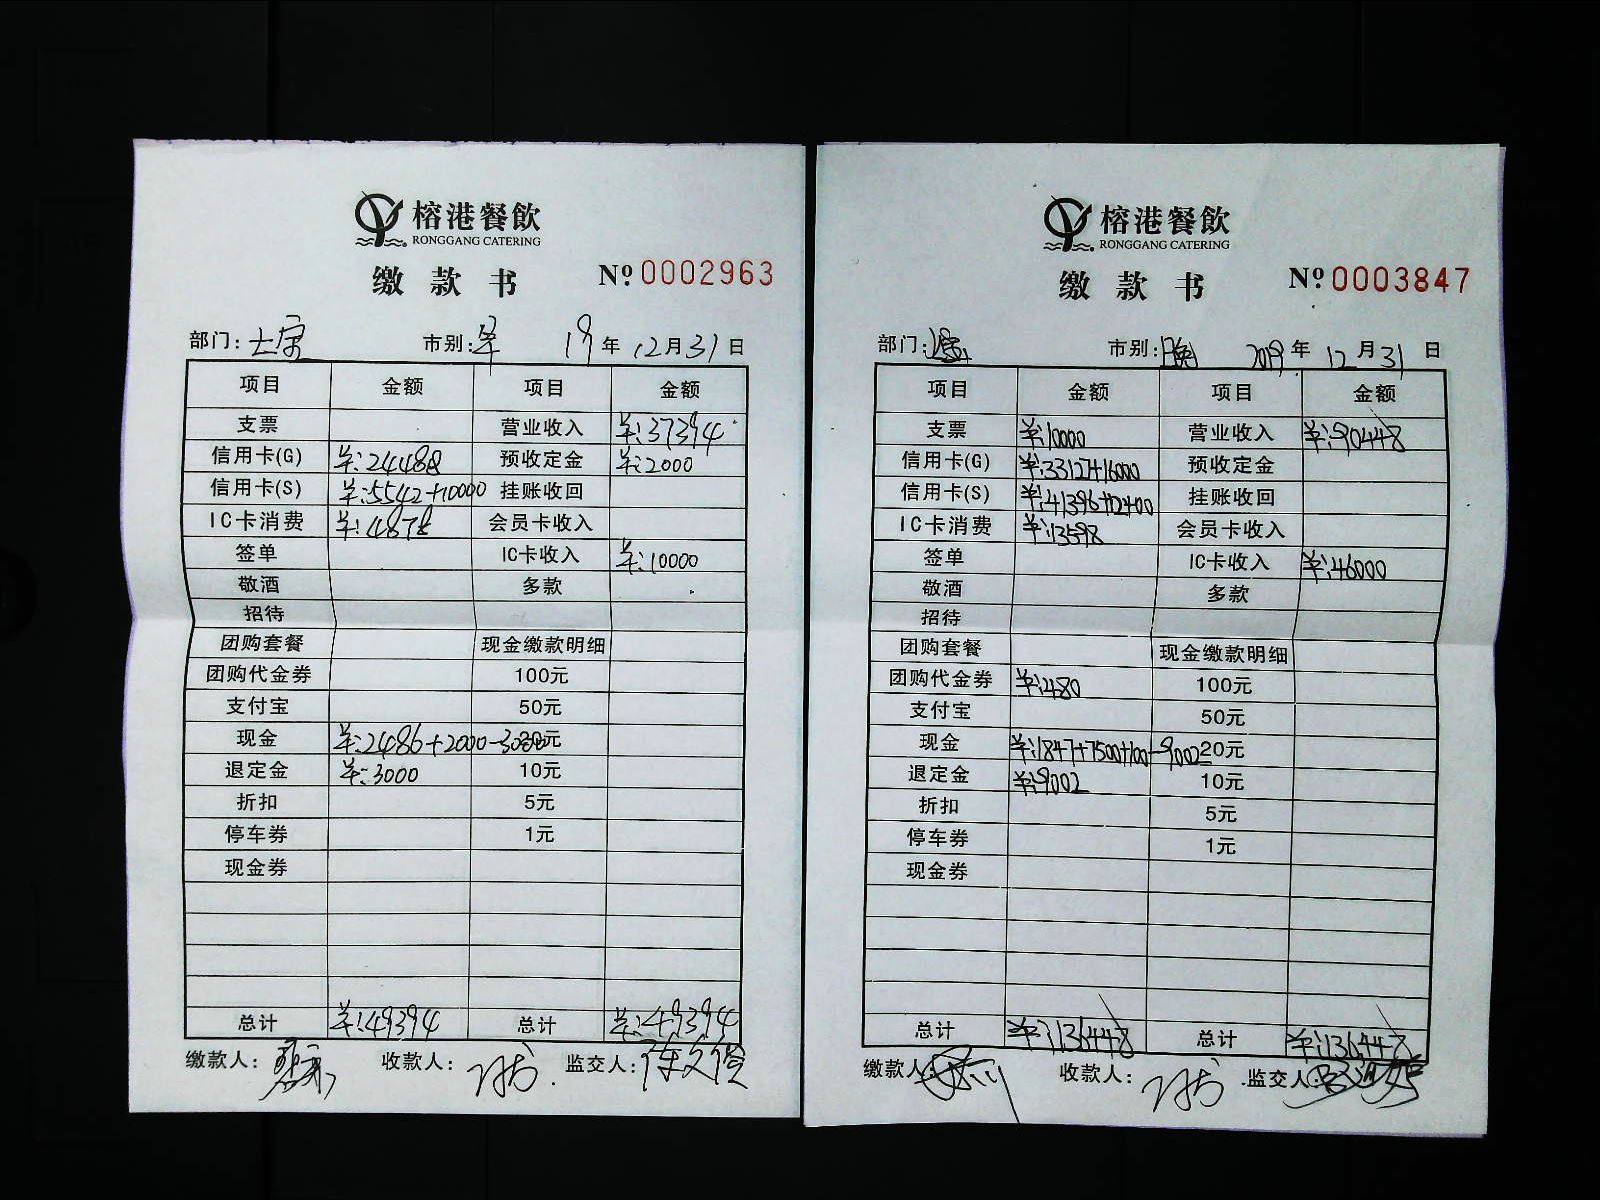 榕港餐飲
RONGGANG CATERING
缴款书 Nº 0002963
部门: 市别: 19年12月31日
项目 金额 项目 金额
支票 营业收入 ¥:37394
信用卡(G) ¥:24488 预收定金 ¥:2000
信用卡(S) ¥:5542+10000 挂账收回
IC卡消费 ¥:4878 会员卡收入
签单 IC卡收入 ¥:10000
敬酒 多款
招待
团购套餐 现金缴款明细
团购代金券 100元
支付宝 50元
现金 ¥:2486+2000-3000 20元
退定金 ¥:3000 10元
折扣 5元
停车券 1元
现金券
总计 ¥:49394 总计 ¥:49394
缴款人: 收款人: 监交人:
榕港餐飲
RONGGANG CATERING
缴款书 Nº 0003847
部门: 市别: 晚 2019年12月31日
项目 金额 项目 金额
支票 ¥:10000 营业收入 ¥:90448
信用卡(G) ¥:33127+16000 预收定金
信用卡(S) ¥:41396+12400 挂账收回
IC卡消费 ¥:13598 会员卡收入
签单 IC卡收入 ¥:46000
敬酒 多款
招待
团购套餐 现金缴款明细
团购代金券 ¥:480 100元
支付宝 50元
现金 ¥:1847+7500+100-9002 20元
退定金 ¥:9002 10元
折扣 5元
停车券 1元
现金券
总计 ¥:136448 总计 ¥:136448
缴款人: 收款人: 监交人: